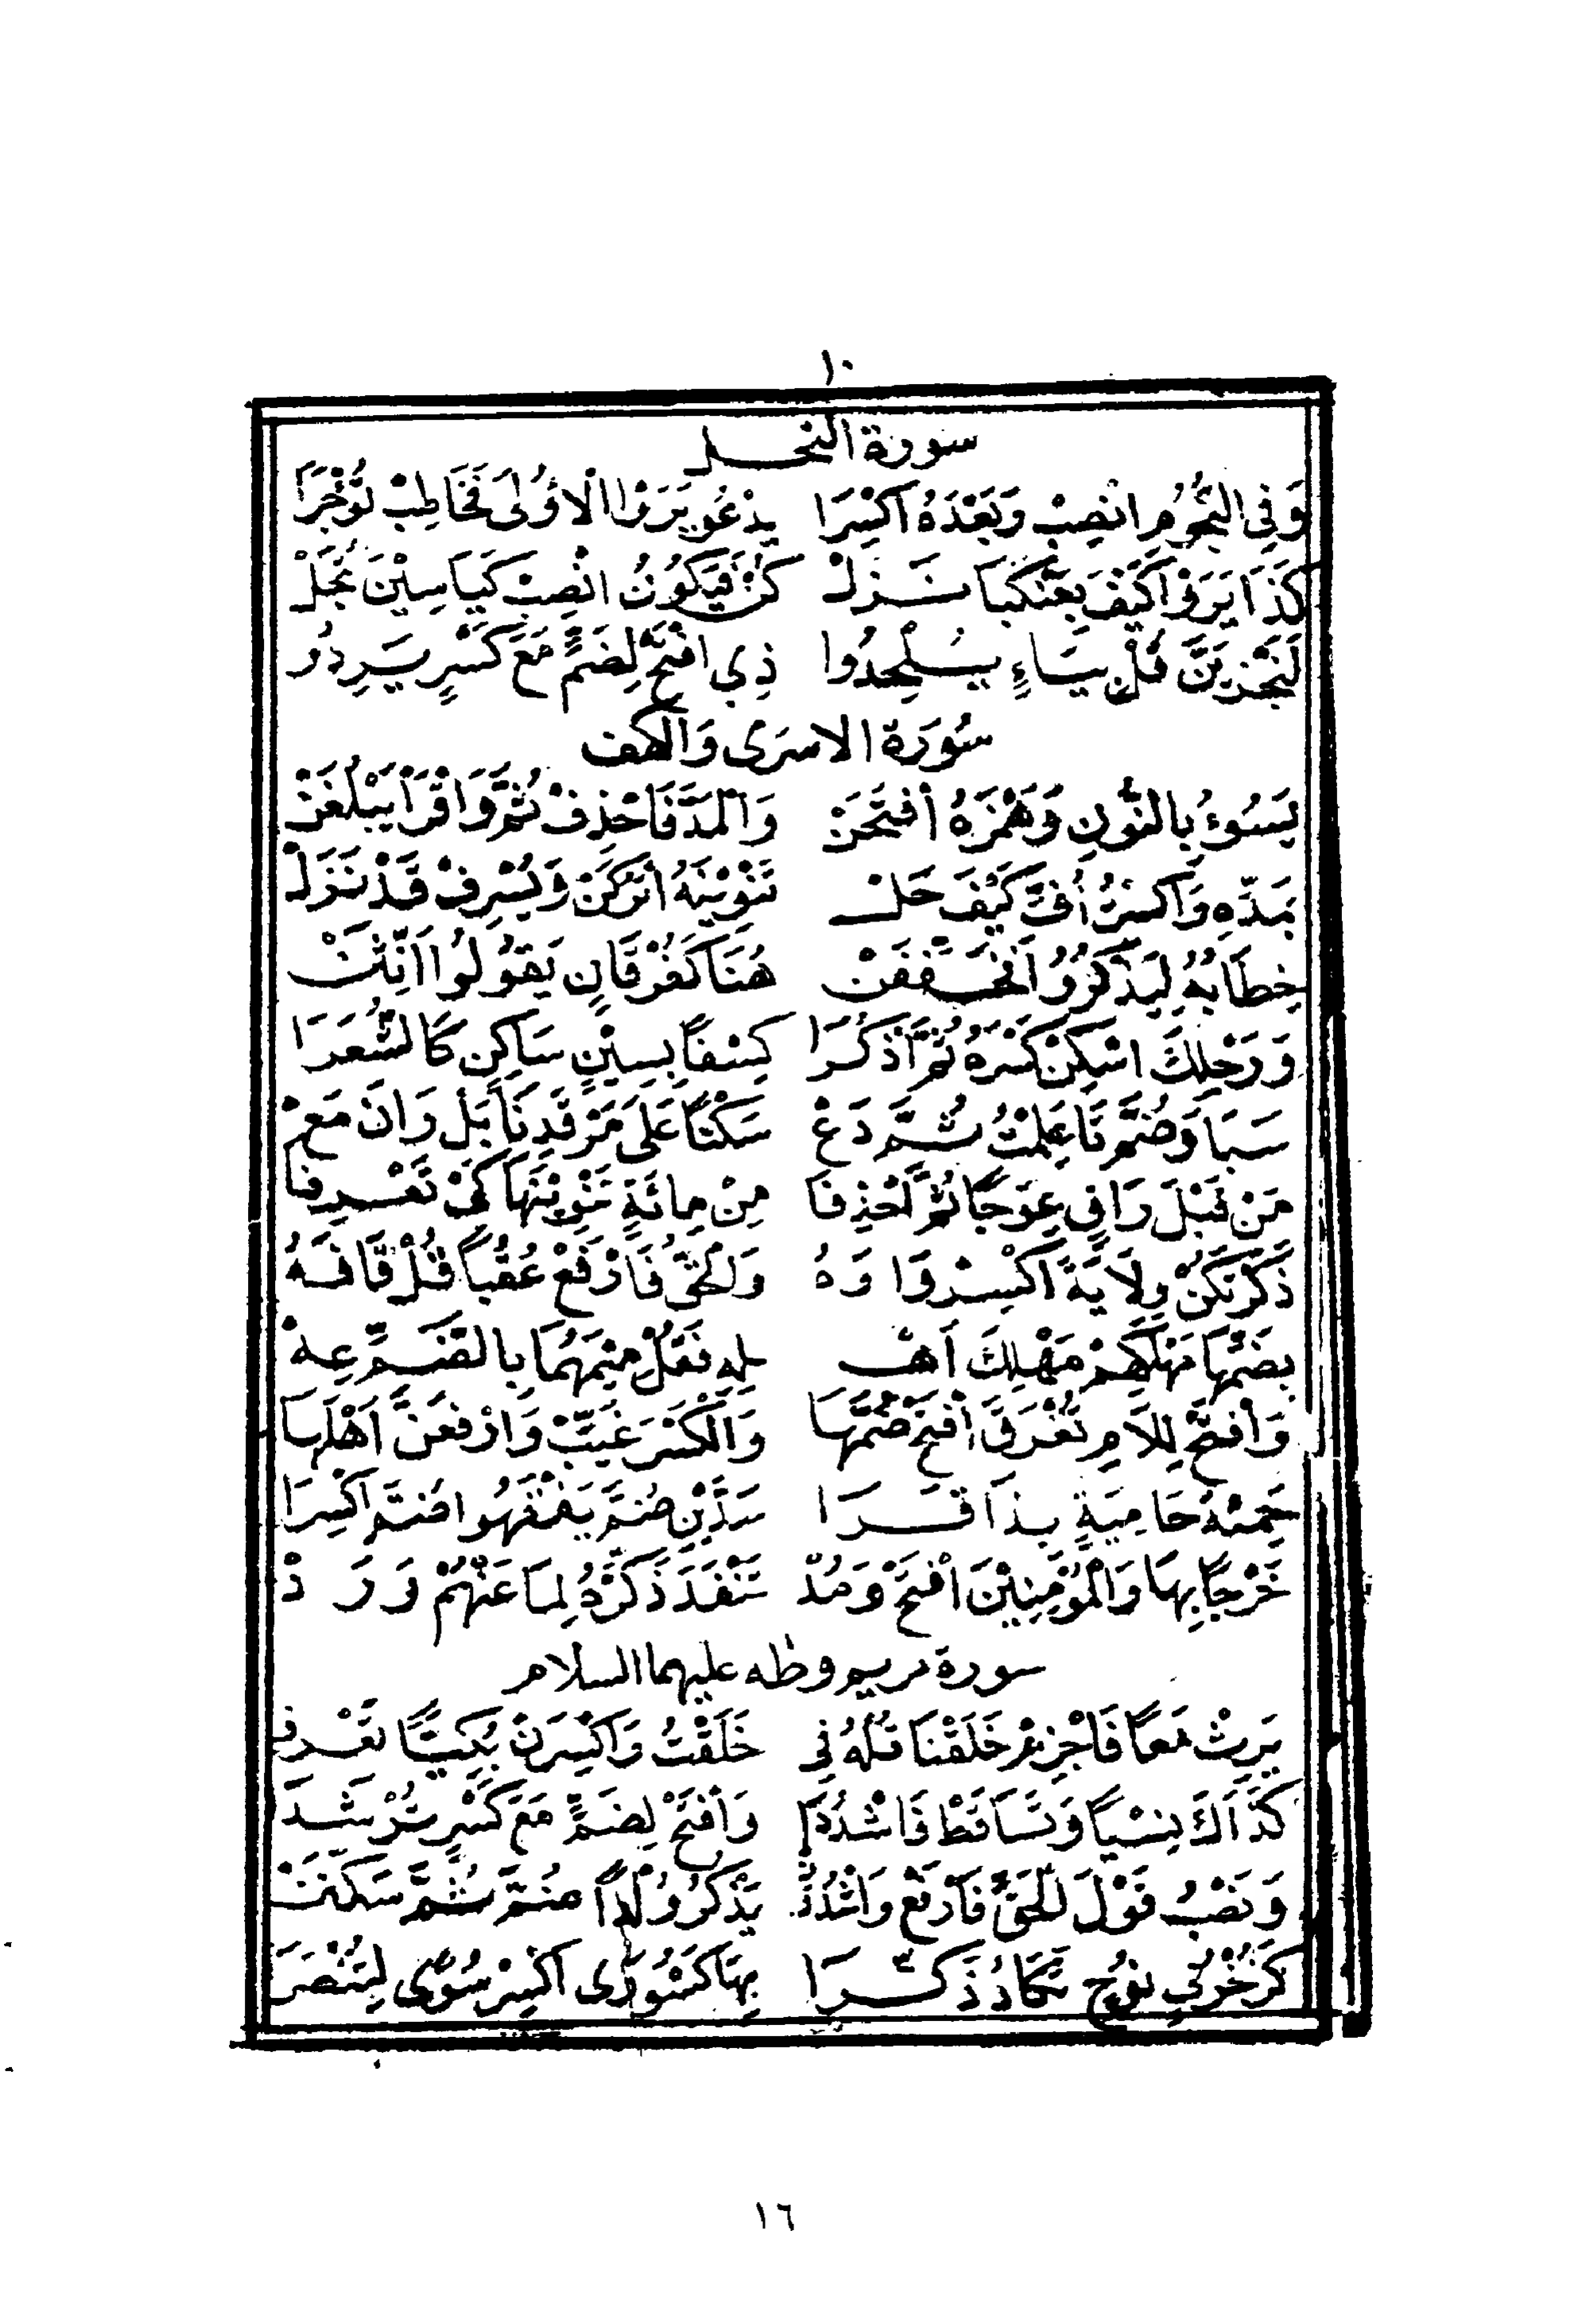 ١٠
سورة النحل
وَفِي النُّجُومِ انْصِبْ وَبَعْدَهُ اكْسِرَا يَدْعُو يَرَوْا الْاُولَى فَخَاطِبْ تُؤْجَرَا
كَذَا يَرَوْا كَيْفَ بِعَنْكَبَا نَزَلْ كُنْ فَيَكُوْنُ انْصِبْ كَيَاسِيْنَ تُجَلْ
لَنَجْزِيَنَّ قُلْ بِيَاءٍ يُلْحِدُوا ذِي افْتَحْ لِضَمٍّ مَعَ كَسْرٍ يَرِدُ
سُورَة الاسرَى وَالكهف
يَسُوءُ بِالنُّونِ وَهَمْزَهُ افْتَحَنْ وَالْمَدَّ فَاحْذِفْ ثُمَّ وَاقْرَأْ يَبْلُغَنْ
بِمَدِّهِ وَاكْسِرْ أُفَّ كَيْفَ حَلْ تَنْوِيْنَهُ اتْرُكَنْ وَيُسْرِفْ قَدْ نَزَلْ
خِطَابُهُ لِيَذْكُرُوُا خَفِّفَنْ هُنَا كَفُرْقَانٍ يَقُوْلُوا اَنِّثَنْ
وَرَجْلِكَ اسْكِنْ كَسْرَهُ ثُمَّ اذْكُرَا كِسْفًا بِسِيْنٍ سَاكِنٍ كَالشُّعَرَا
سَبَا وَضُمَّ تَا عَلِمْتُ ثُمَّ دَعْ سَكْتًا عَلَى مَرْقَدِنَا بَلْ رَانَ مَعْ
مَنْ قَبْلَ رَاقٍ عِوَجًا ثُمَّ احْذِفَا مِنْ مِائَةٍ تَنْوِيْنَهَا كَيْ تَعْرِفَا
ذَكِّرْ تَكُنْ وِلَايَةً اكْسِرْ وَاوَهُ وَالْحَقُّ فَارْفَعْ عُقُبًا قُلْ قَافَهُ
بِضَمِّهَا مَهْلِكَهِمْ مَهْلِكَ اَهْـ ـلِهِ فَقُلْ مِيْمَهُمَا بِالضَّمِّ عِهْ
وَافْتَحْ لِلَامٍ تُغْرِقَ افْتَحْ ضَمَّهَا وَالْكَسْرَ غَيِّبْ وَارْفَعَنَّ اَهْلَهَا
حَمِئَةٍ حَامِيَةٍ بِذَا قَرَا سَدَّيْنِ ضُمَّ يَفْقَهُوا ضُمَّ اكْسِرَا
خَرْجًا بِهَا وَالْمُؤْمِنِيْنَ افْتَحْ وَمُدْ تَنْفَدَ ذَكِّرْهُ لِمَا عَنْهُمْ وَرَدْ
سورة مريم وطه عليهما السلام
يَرِثْ مَعًا فَاجْزِمْ خَلَقْنَا قُلْهُ فِي خَلَقْتُ وَاكْسِرَنْ بُكِيًّا تَعْرِفِ
كَذَاكَ نِسْيًا وَتَسَاقَطْ فَاشْدُدَا وَافْتَحْ لِضَمٍّ مَعَ كَسْرٍ تُرْشَدَا
وَنَصْبُ قَوْلَ الْحَقِّ فَارْفَعْ وَاشْدُدْ يَذْكُرُ وُلْدًا ضُمَّ ثُمَّ سَكِّنَنْ
كَزُخْرُفٍ نُوْحٍ تَكَادُ ذَكِّرَا بِهَا كَشُوْرَى اكْسِرْ سُوًى لِتُنْصَرَا
١٦